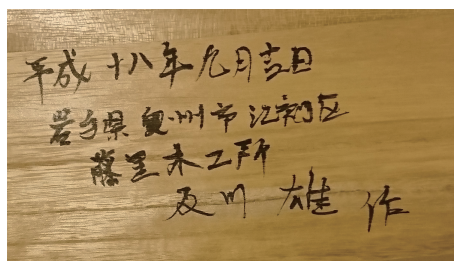 平成十八年九月吉日
岩手県奥州市江刺区
藤里木工所
及川 雄 作